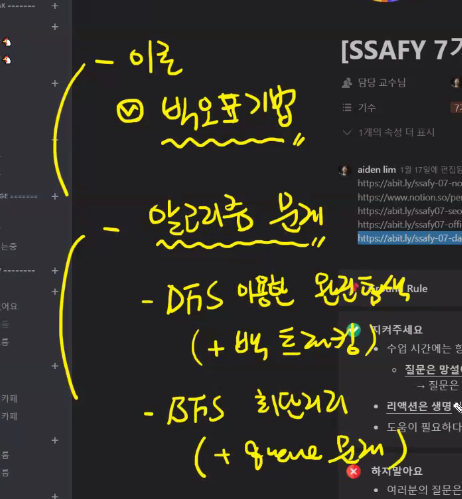 - 이론
빅오표기법
- 알고리즘 문제
- DFS 이용한 완전탐색
(+ 백트래킹)
- BFS 최단거리
(+ queue 문제)
[SSAFY 7기
담당 교수님
기수
1개의 속성 더 표시
aiden lim 1월 17일에 편집됨
https://abit.ly/ssafy-07-no
https://www.notion.so/pe
https://abit.ly/ssafy-07-seo
https://abit.ly/ssafy-07-offi
https://abit.ly/ssafy-07-da
Rule
지켜주세요
• 수업 시간에는 항
질문은 망설이
→ 질문은
• 리액션은 생명
• 도움이 필요하다
하지말아요
• 여러분의 질문은
는중
어요
름
카페
카페
름
름